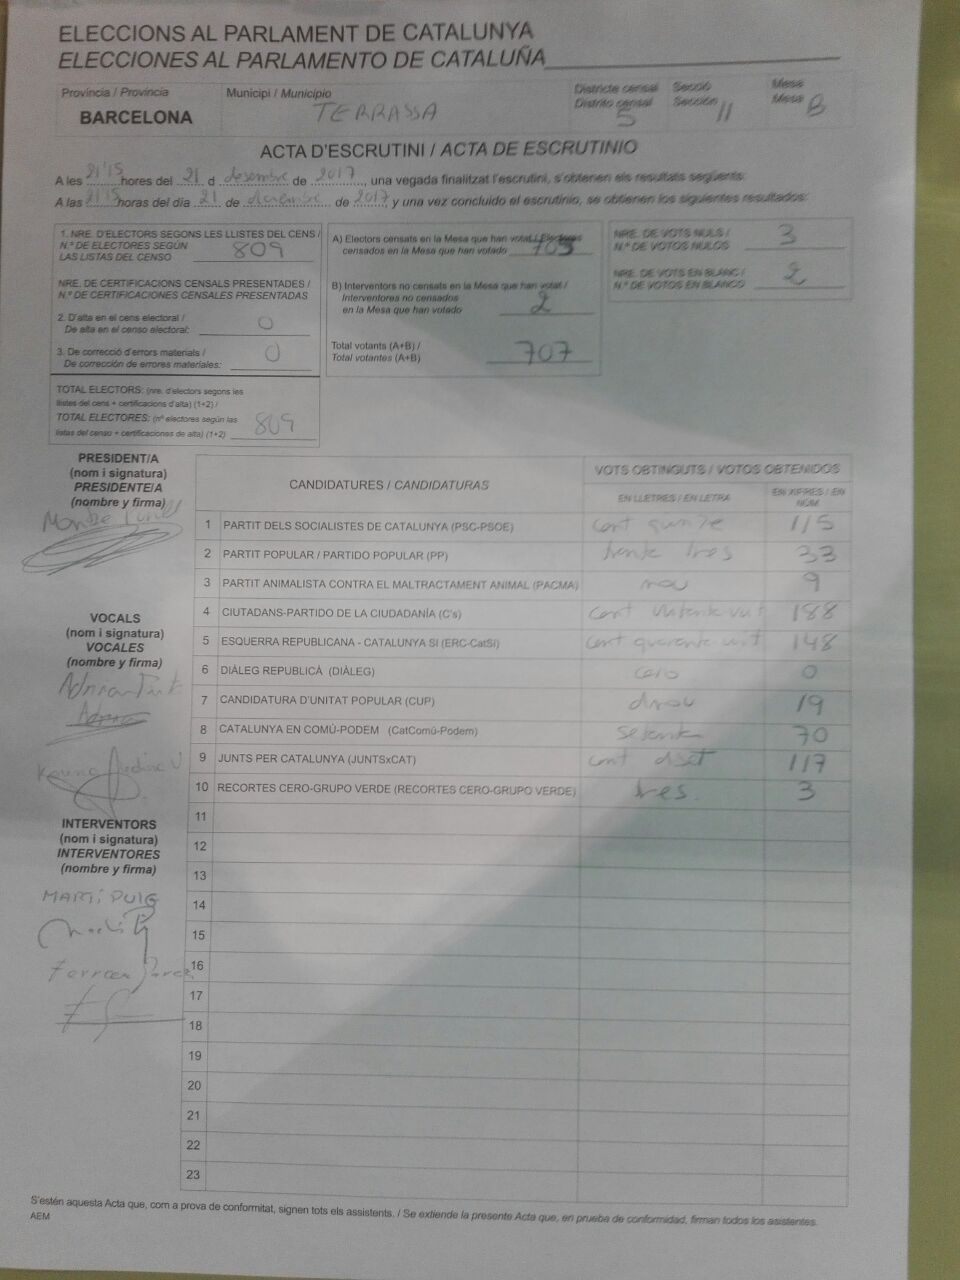 ELECCIONS AL PARLAMENT DE CATALUNYA
ELECCIONES AL PARLAMENTO DE CATALUÑA
Província / Provincia
Municipi / Municipio
Districte censal
Distrito censal
Secció
Sección
Mesa
Mesa
BARCELONA
TERRASSA
5
11
B
ACTA D'ESCRUTINI / ACTA DE ESCRUTINIO
A les 21'15 hores del 21 d desembre de 2017, una vegada finalitzat l'escrutini, s'obtenen els resultats següents:
A las 21'15 horas del día 21 de diciembre de 2017 y una vez concluido el escrutinio, se obtienen los siguientes resultados:
1. NRE. D'ELECTORS SEGONS LES LLISTES DEL CENS /
N.º DE ELECTORES SEGÚN
LAS LISTAS DEL CENSO 809
NRE. DE CERTIFICACIONS CENSALS PRESENTADES /
N.º DE CERTIFICACIONES CENSALES PRESENTADAS
2. D'alta en el cens electoral /
De alta en el censo electoral: 0
3. De correcció d'errors materials /
De corrección de errores materiales: 0
TOTAL ELECTORS: (nre. d'electors segons les
llistes del cens + certificacions d'alta) (1+2) /
TOTAL ELECTORES: (nº electores según las
listas del censo + certificaciones de alta) (1+2) 809
A) Electors censats en la Mesa que han votat / Electores
censados en la Mesa que han votado 705
B) Interventors no censats en la Mesa que han votat /
Interventores no censados
en la Mesa que han votado 2
Total votants (A+B) /
Total votantes (A+B) 707
NRE. DE VOTS NULS /
N.º DE VOTOS NULOS 3
NRE. DE VOTS EN BLANC /
N.º DE VOTOS EN BLANCO 2
PRESIDENT/A
(nom i signatura)
PRESIDENTE/A
(nombre y firma)
VOCALS
(nom i signatura)
VOCALES
(nombre y firma)
INTERVENTORS
(nom i signatura)
INTERVENTORES
(nombre y firma)
MARTÍ PUIG
CANDIDATURES / CANDIDATURAS
VOTS OBTINGUTS / VOTOS OBTENIDOS
EN LLETRES / EN LETRA
EN XIFRES / EN NÚM
1 PARTIT DELS SOCIALISTES DE CATALUNYA (PSC-PSOE) cent quinze 115
2 PARTIT POPULAR / PARTIDO POPULAR (PP) trenta tres 33
3 PARTIT ANIMALISTA CONTRA EL MALTRACTAMENT ANIMAL (PACMA) nou 9
4 CIUTADANS-PARTIDO DE LA CIUDADANÍA (C's) cent vuitanta vuit 188
5 ESQUERRA REPUBLICANA - CATALUNYA SI (ERC-CatSí) cent quaranta vuit 148
6 DIÀLEG REPUBLICÀ (DIÀLEG) cero 0
7 CANDIDATURA D'UNITAT POPULAR (CUP) dinou 19
8 CATALUNYA EN COMÚ-PODEM (CatComú-Podem) setanta 70
9 JUNTS PER CATALUNYA (JUNTSxCAT) cent disset 117
10 RECORTES CERO-GRUPO VERDE (RECORTES CERO-GRUPO VERDE) tres. 3
11
12
13
14
15
16
17
18
19
20
21
22
23
S'estén aquesta Acta que, com a prova de conformitat, signen tots els assistents. / Se extiende la presente Acta que, en prueba de conformidad, firman todos los asistentes.
AEM